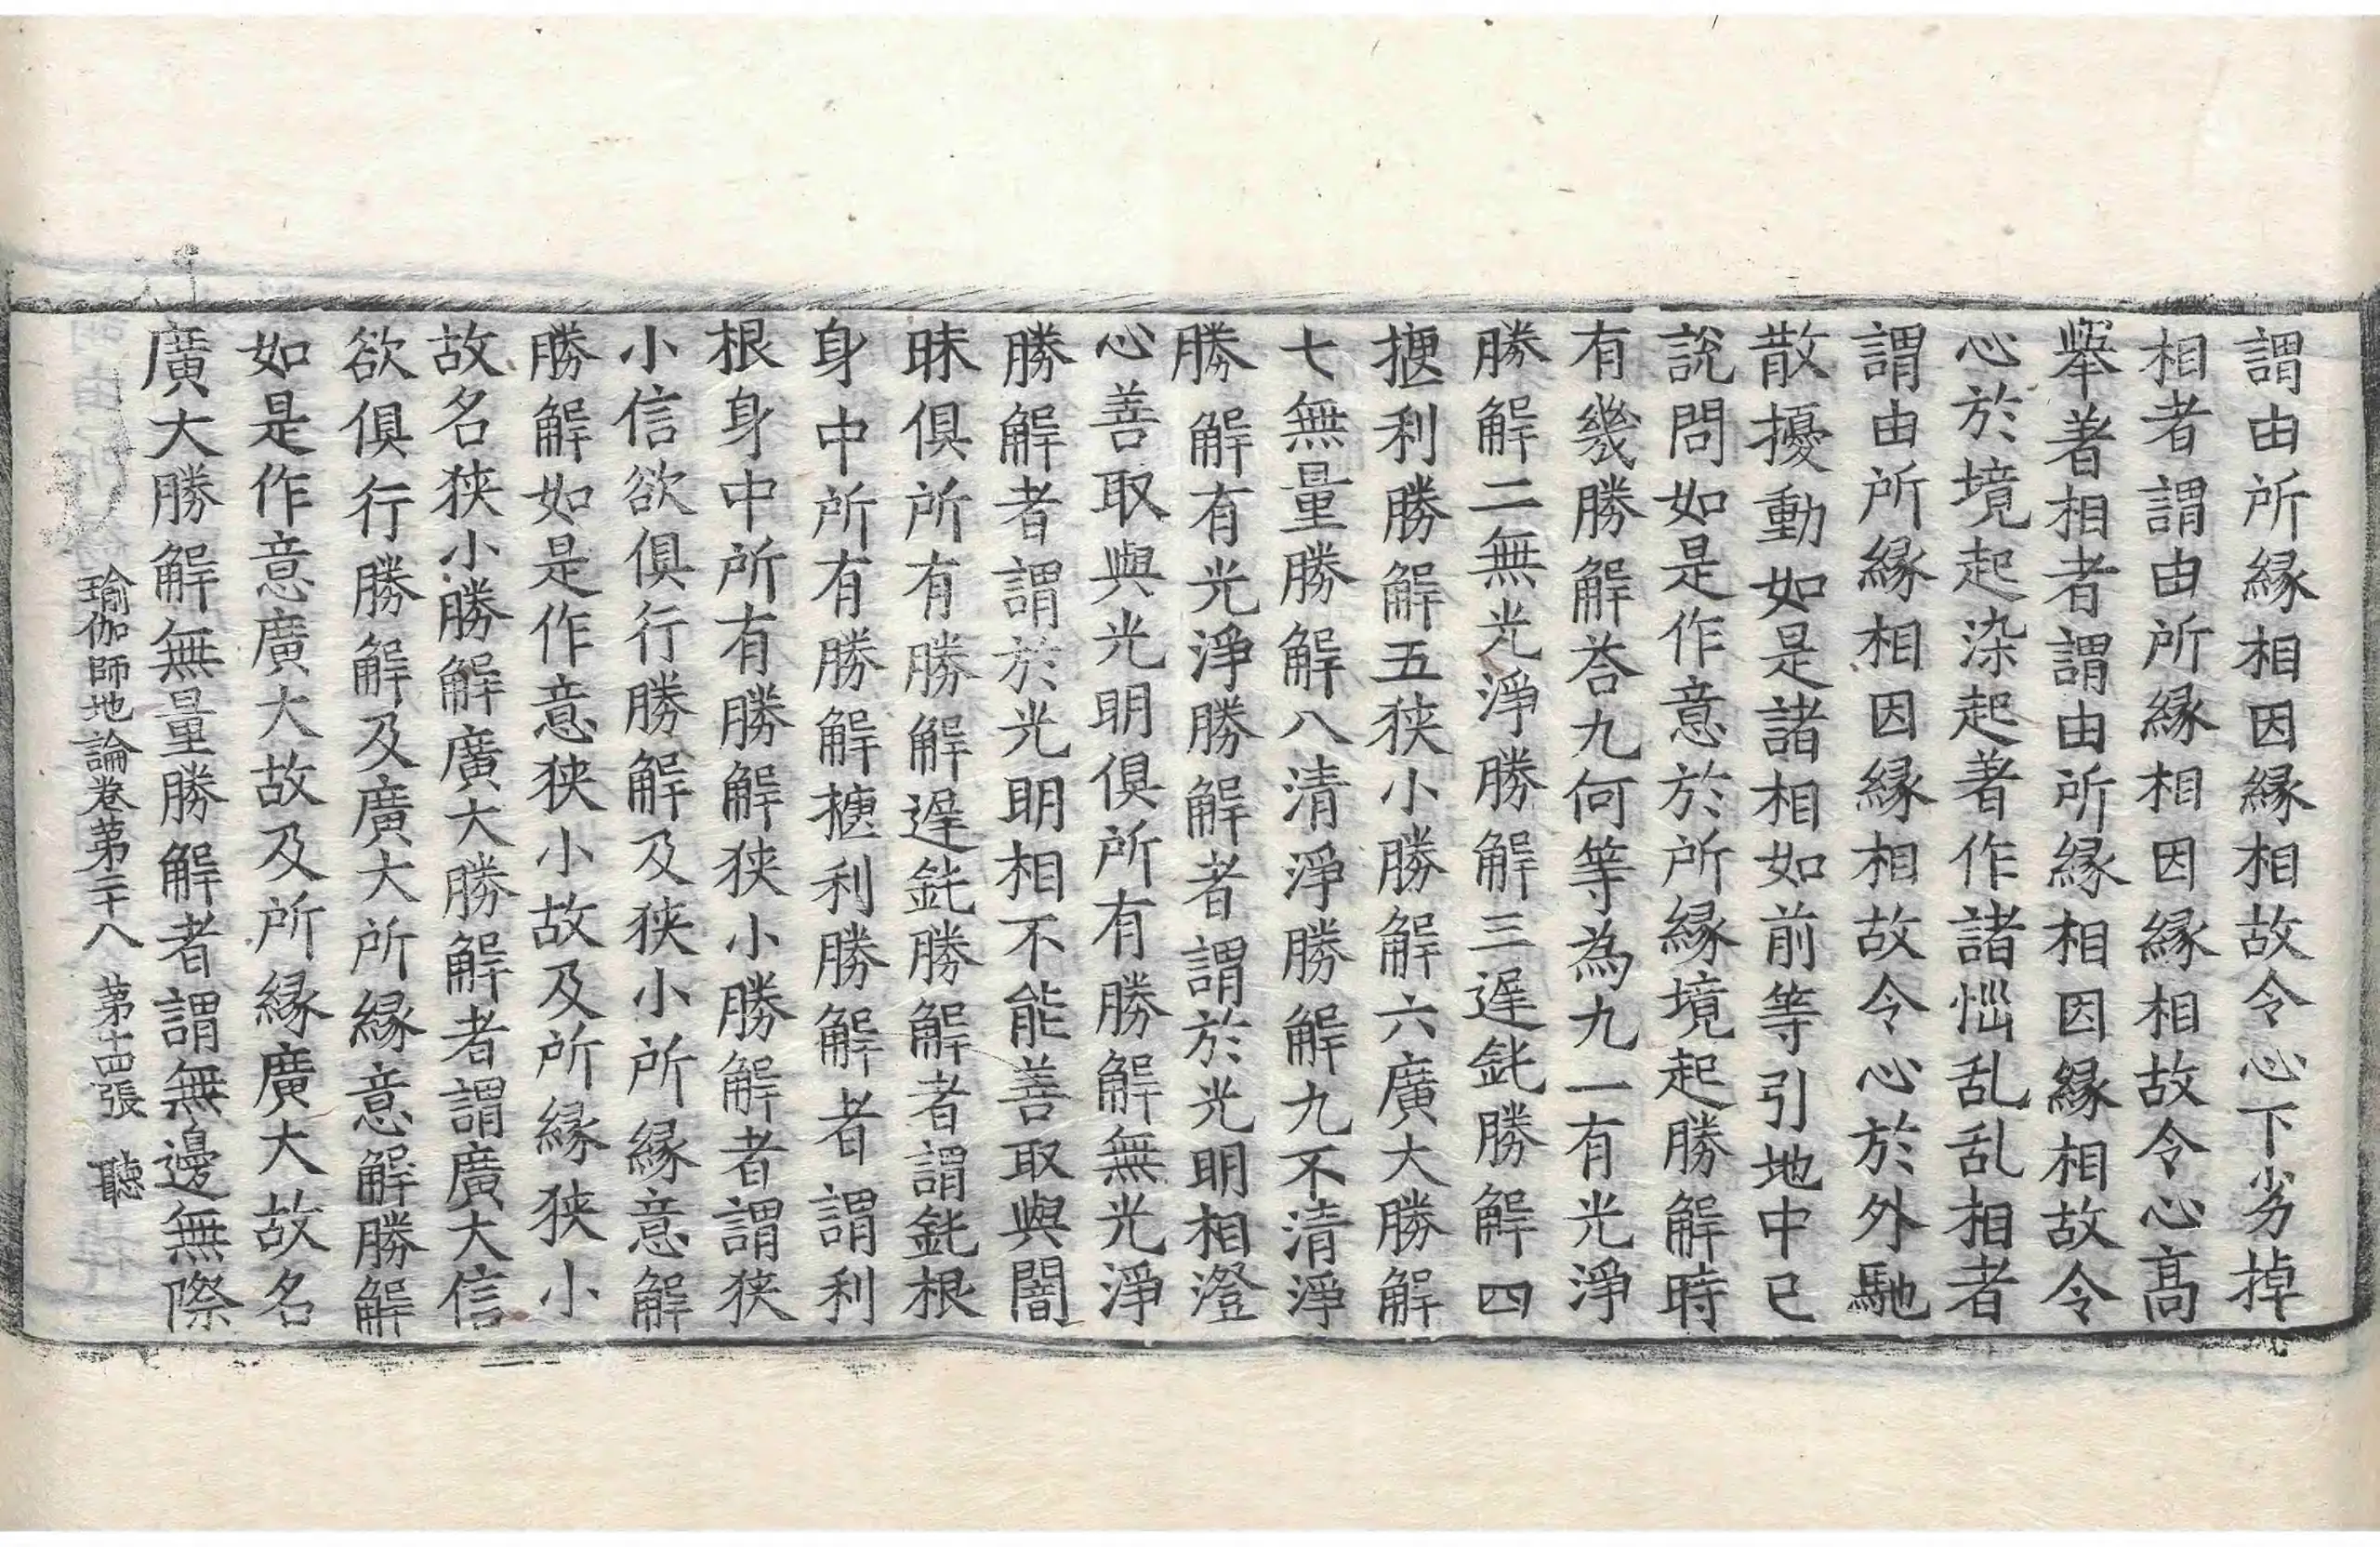 謂由所縁相因縁相故令心下劣掉
相者謂由所縁相因縁相故令心髙
舉著相者謂由所縁相因縁相故令
心於境起染起著作諸惱乱乱相者
謂由所縁相因縁相故令心於外馳
散擾動如是諸相如前等引地中已
說問如是作意於所縁境起勝解時
有幾勝解荅九何等為九一有光淨
勝解二無光淨勝解三遲鈍勝解四
揵利勝解五狹小勝解六廣大勝解
七無量勝解八清淨勝解九不清淨
勝解有光淨勝解者謂於光明相澄
心善取與光明俱所有勝解無光淨
勝解者謂於光明相不能善取與闇
昧俱所有勝解遲鈍勝解者謂鈍根
身中所有勝解揵利勝解者謂利
根身中所有勝解狹小勝解者謂狹
小信欲俱行勝解及狹小所縁意解
勝解如是作意狹小故及所縁狹小
故名狹小勝解廣大勝解者謂廣大信
欲俱行勝解及廣大所縁意解勝解
如是作意廣大故及所縁廣大故名
廣大勝解無量勝解者謂無邊無際
瑜伽師地論卷第二十八 第十四張 聽